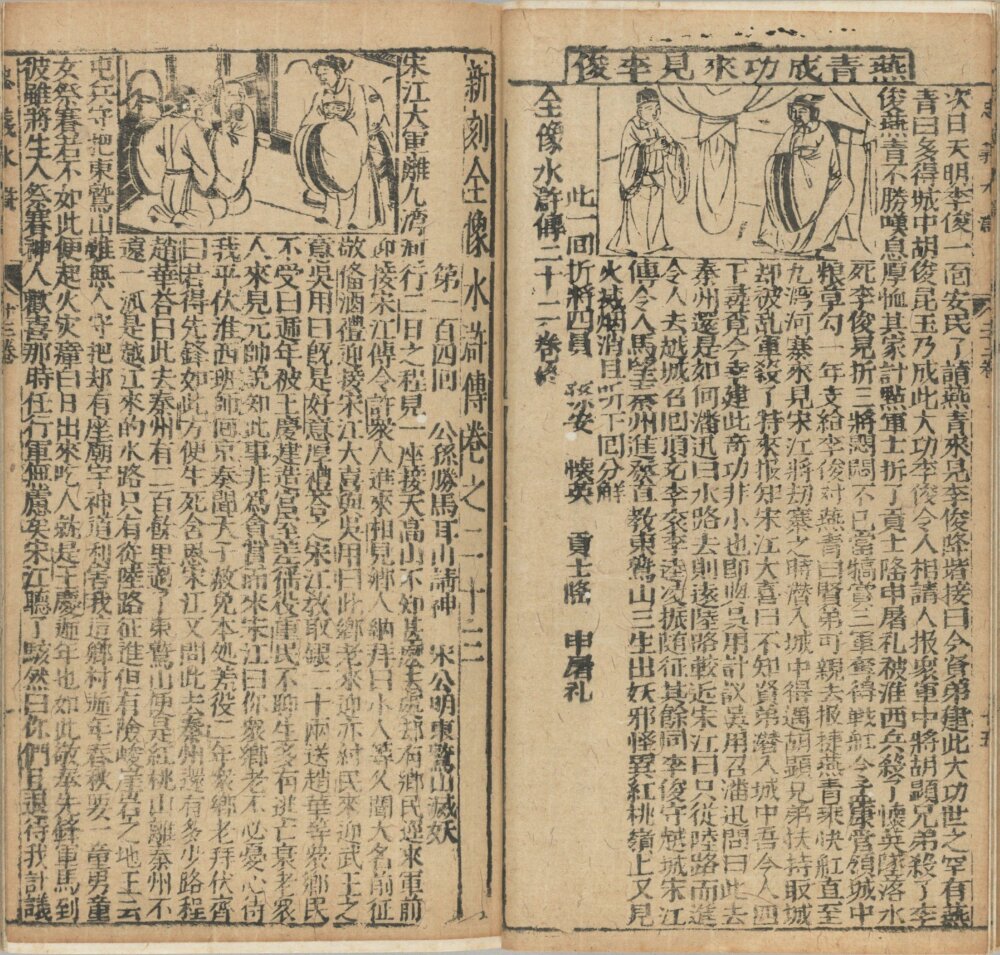 燕青成功來見李俊
次日天明李俊一面安民了請燕青來見李俊降堦接曰今賢弟建此大功世之罕有燕
青曰多得城中胡俊民玉乃成此大功李俊令人相請人报衆軍中將胡顯兄弟殺了李
俊燕青不勝嘆息厚恤其家計點軍士折了貢士隆申屠礼被淮西兵殺了懷英墜落水
死李俊見折三將悶悶不已當犒賞三軍奪得戰舡令王康管領城中
粮草勾一年支給李俊对燕青曰賢弟可親去报捷燕青乘快舡直至
九湾河寨來見宋江將劫寨之時潜入城中得遇胡顯兄弟扶持取城
却被乱軍殺了特來报知宋江大喜曰不知賢弟潜入城中吾令人四
下尋覓今幸建此奇功非小也即喚吳用計議吳用召潘迅問曰此去
秦州還是如何潘迅曰水路去則遠陸路載近宋江曰只從陸路而進
令人去越城召囘項充李衮李逵凌振随征其餘同李俊守越城宋江
傳令人馬望秦州進發直教東鷲山三生出妖邪怪異紅桃嶺上又見
火滅烟消且听下囘分解
此一囘折將四員 孫安 懷英 貢士隆 申屠礼
全像水滸傳二十二卷終
新刻全像水滸傳卷之二十三
第一百四囘 公孫勝馬耳山請神 宋公明東鷲山滅妖
宋江大軍離九湾河行二日之程見一座接天高山不知甚處却有鄉民逕來軍前
迎接宋江傳令許衆人進來相見鄉人納拜曰小人等久聞大名前征
敬備酒禮迎接宋江大喜與吳用曰此鄉老來迎亦紂民來迎武王之
意吳用曰既是好意厚禮荅之宋江教取銀二十兩送趙華等衆鄉民
不受曰遞年被王慶建造宮室差徭役重民不聊生多有逃亡哀老衆
人來見元帥説知此事非爲貪賞而來宋江曰你衆鄉老不必憂心待
我平伏淮西班師囘京奏聞天子赦免本処差役二年衆鄉老拜伏齊
曰若得先鋒如此方便生死含恩宋江又問此去秦州還有多少路程
趙華荅曰此去秦州有二百餘里過了東鷲山便是紅桃山離秦州不
遠一派是越江來的水路只有從陸路征進但有險峻崖岩之地王云
屯兵守把東鷲山雖無人守把却有座廟宇神道利害我這鄉村遞年春秋要一童男童
女祭賽若不如此便起火灾瘴曰日出來吃人就是王慶遞年也如此敬奉先鋒軍馬到
彼雖將生人祭賽神人歡喜那時任行軍無慮矣宋江聽了駭然曰你們且退待我計議